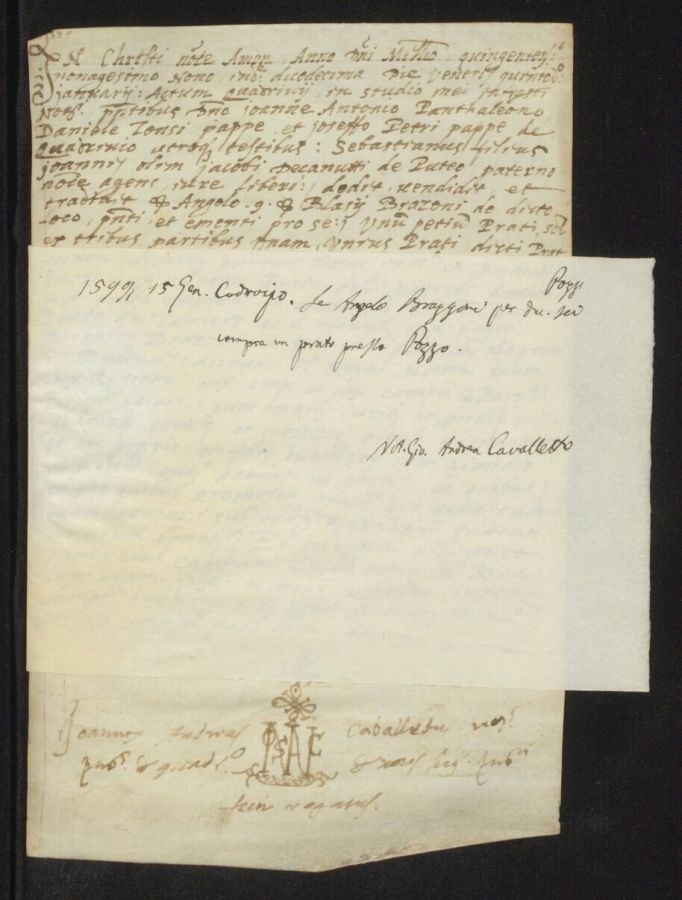 IN Chrīsti nōīe Amen, Anno Dn̄i Mill̄o. quingentes.º
nonagesimo Nono, ind: duodecima Die Veneris quintod:º
januarij: Actum Quadruvij in studio mei infr̄atti
Nots. pn̄tibus Dn̄o joanne Antonio Panthaleono,
Daniele Tonsi pappe, et joseffo Petri pappe de
Quadruvio utroq testibus: Sebastianus filius
joannis olim jacobi Decanutti de Puteo, paterno
nōīe agens, iure liberi: dedit, vendidit, et
Angelo. q. Blasij Brazoni de dicto
loco, pn̄ti, et ementi pro se: j Unū petiū Prati,
ex tribus partibus unam, Unius Prati dicti Prat
1599, 15 Gen. Codroipo. Ser Angelo Brazzoni per du. sei
Pozzo
compra un prato presso Pozzo.
Not. Gio. Andrea Cavalletto
Joannes Andreas Caballettu not.